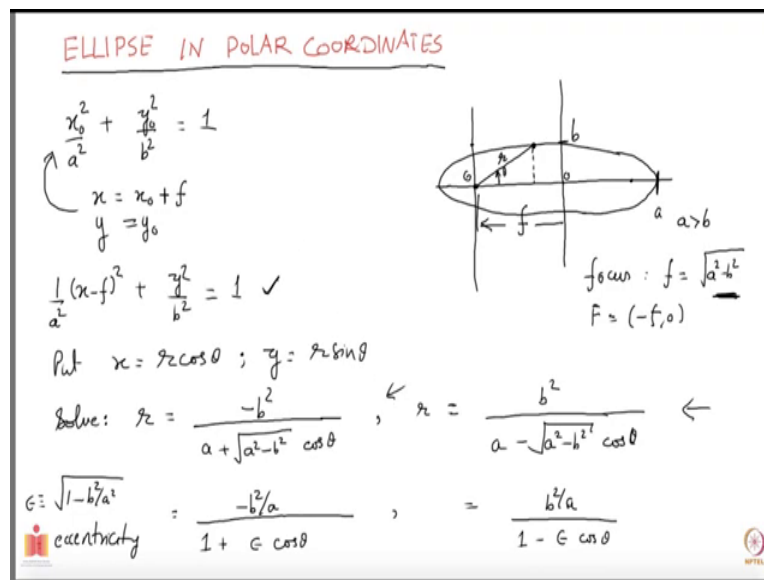 ELLIPSE IN POLAR COORDINATES
x₀²/a² + y₀²/b² = 1
x = x₀ + f
y = y₀
1/a² (x-f)² + y²/b² = 1 ✓
Put x = r cosθ ; y = r sinθ
Solve: r = -b² / (a + √(a²-b²) cosθ) , ← r = b² / (a - √(a²-b²) cosθ) ←
ϵ ≡ √(1-b²/a²) = (-b²/a) / (1 + ϵ cosθ) , = (b²/a) / (1 - ϵ cosθ)
eccentricity
b
r
θ
0
a
f
a>b
focus : f = √(a²-b²)
F = (-f,0)
NPTEL